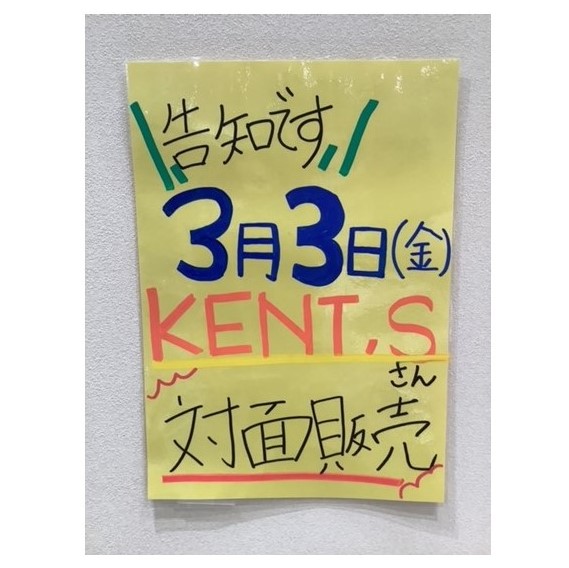 告知です
3月3日(金)
KENT,S
さん
対面販売